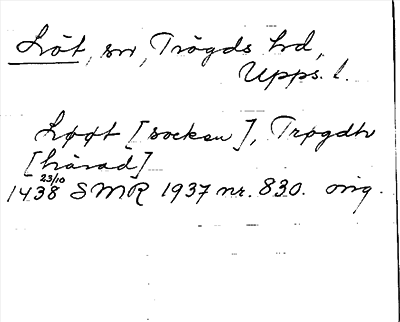 Löt, sn, Trögds hd,
Upps. l.
Løøt [socken], Trøgdh
[härad]
23/10
1438 SMR 1937 nr. 830. orig.